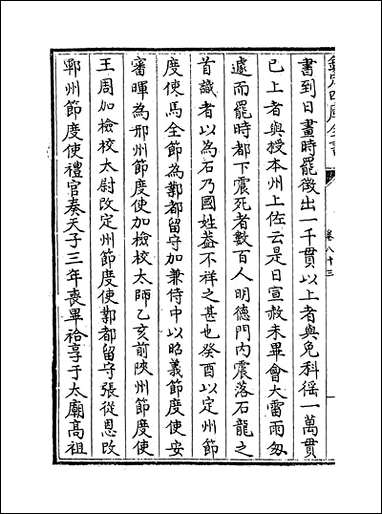 欽定四庫全書
卷八十三
書到日畫時罷徵出一千貫以上者與免科徭一萬貫
已上者與授本州上佐云是日宣赦未畢會大雷雨匆
遽而罷時都下震死者數百人明德門内震落石龍之
首識者以為石乃國姓葢不祥之甚也癸酉以定州節
度使馬全節為鄴都留守加兼侍中以昭義節度使安
審暉為邢州節度使加檢校太師乙亥前陜州節度使
王周加檢校太尉改定州節度使鄴都留守張從恩改
鄆州節度使禮官奏天子三年喪畢祫享于太廟高祖